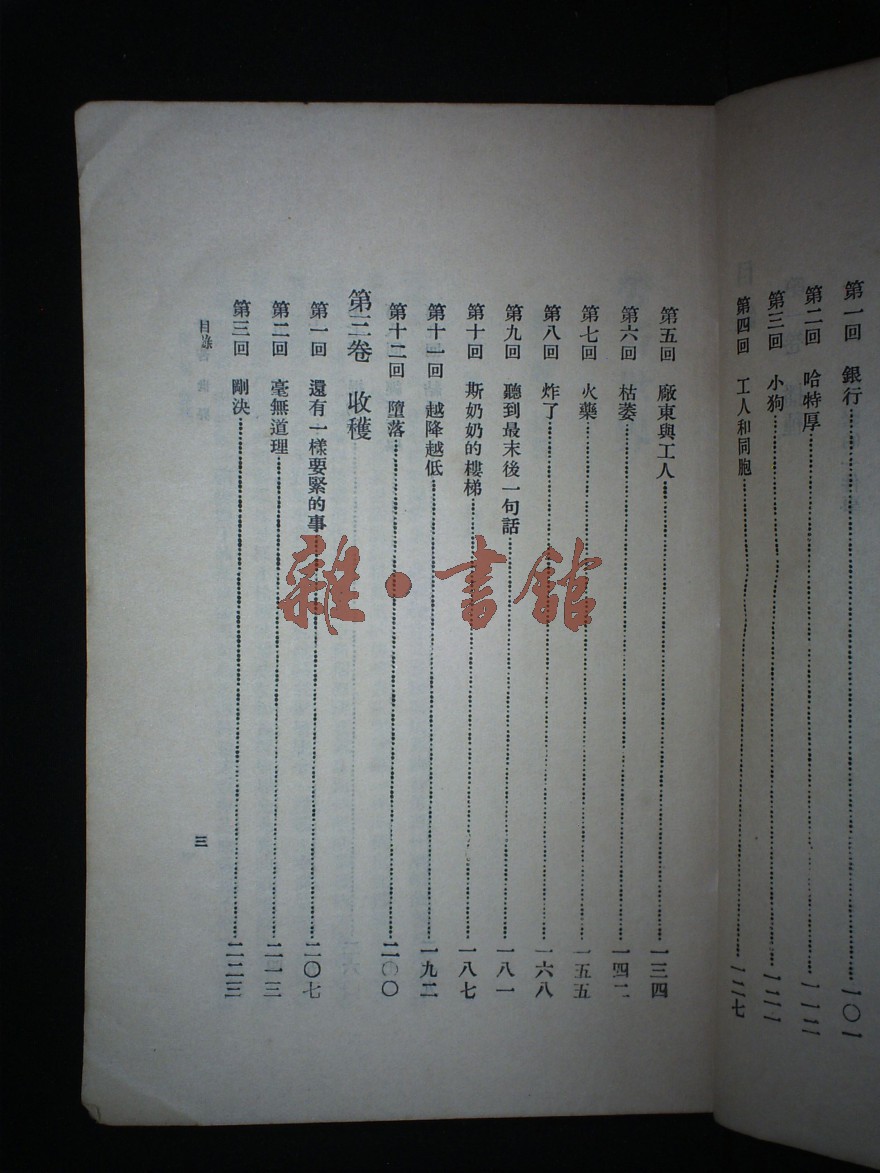 第一回　銀行…………一〇一
第二回　哈特厚…………一一二
第三回　小狗…………一二一
第四回　工人和同胞…………一二七
第五回　廠東與工人…………一三四
第六回　枯萎…………一四二
第七回　火藥…………一五五
第八回　炸了…………一六八
第九回　聽到最末後一句話…………一八一
第十回　斯奶奶的樓梯…………一八七
第十一回　越降越低…………一九二
第十二回　墮落…………二〇〇
第三卷　收穫
第一回　還有一樣要緊的事…………二〇七
第二回　毫無道理…………二一三
第三回　剛決…………二二三
目錄
三
雜·書館